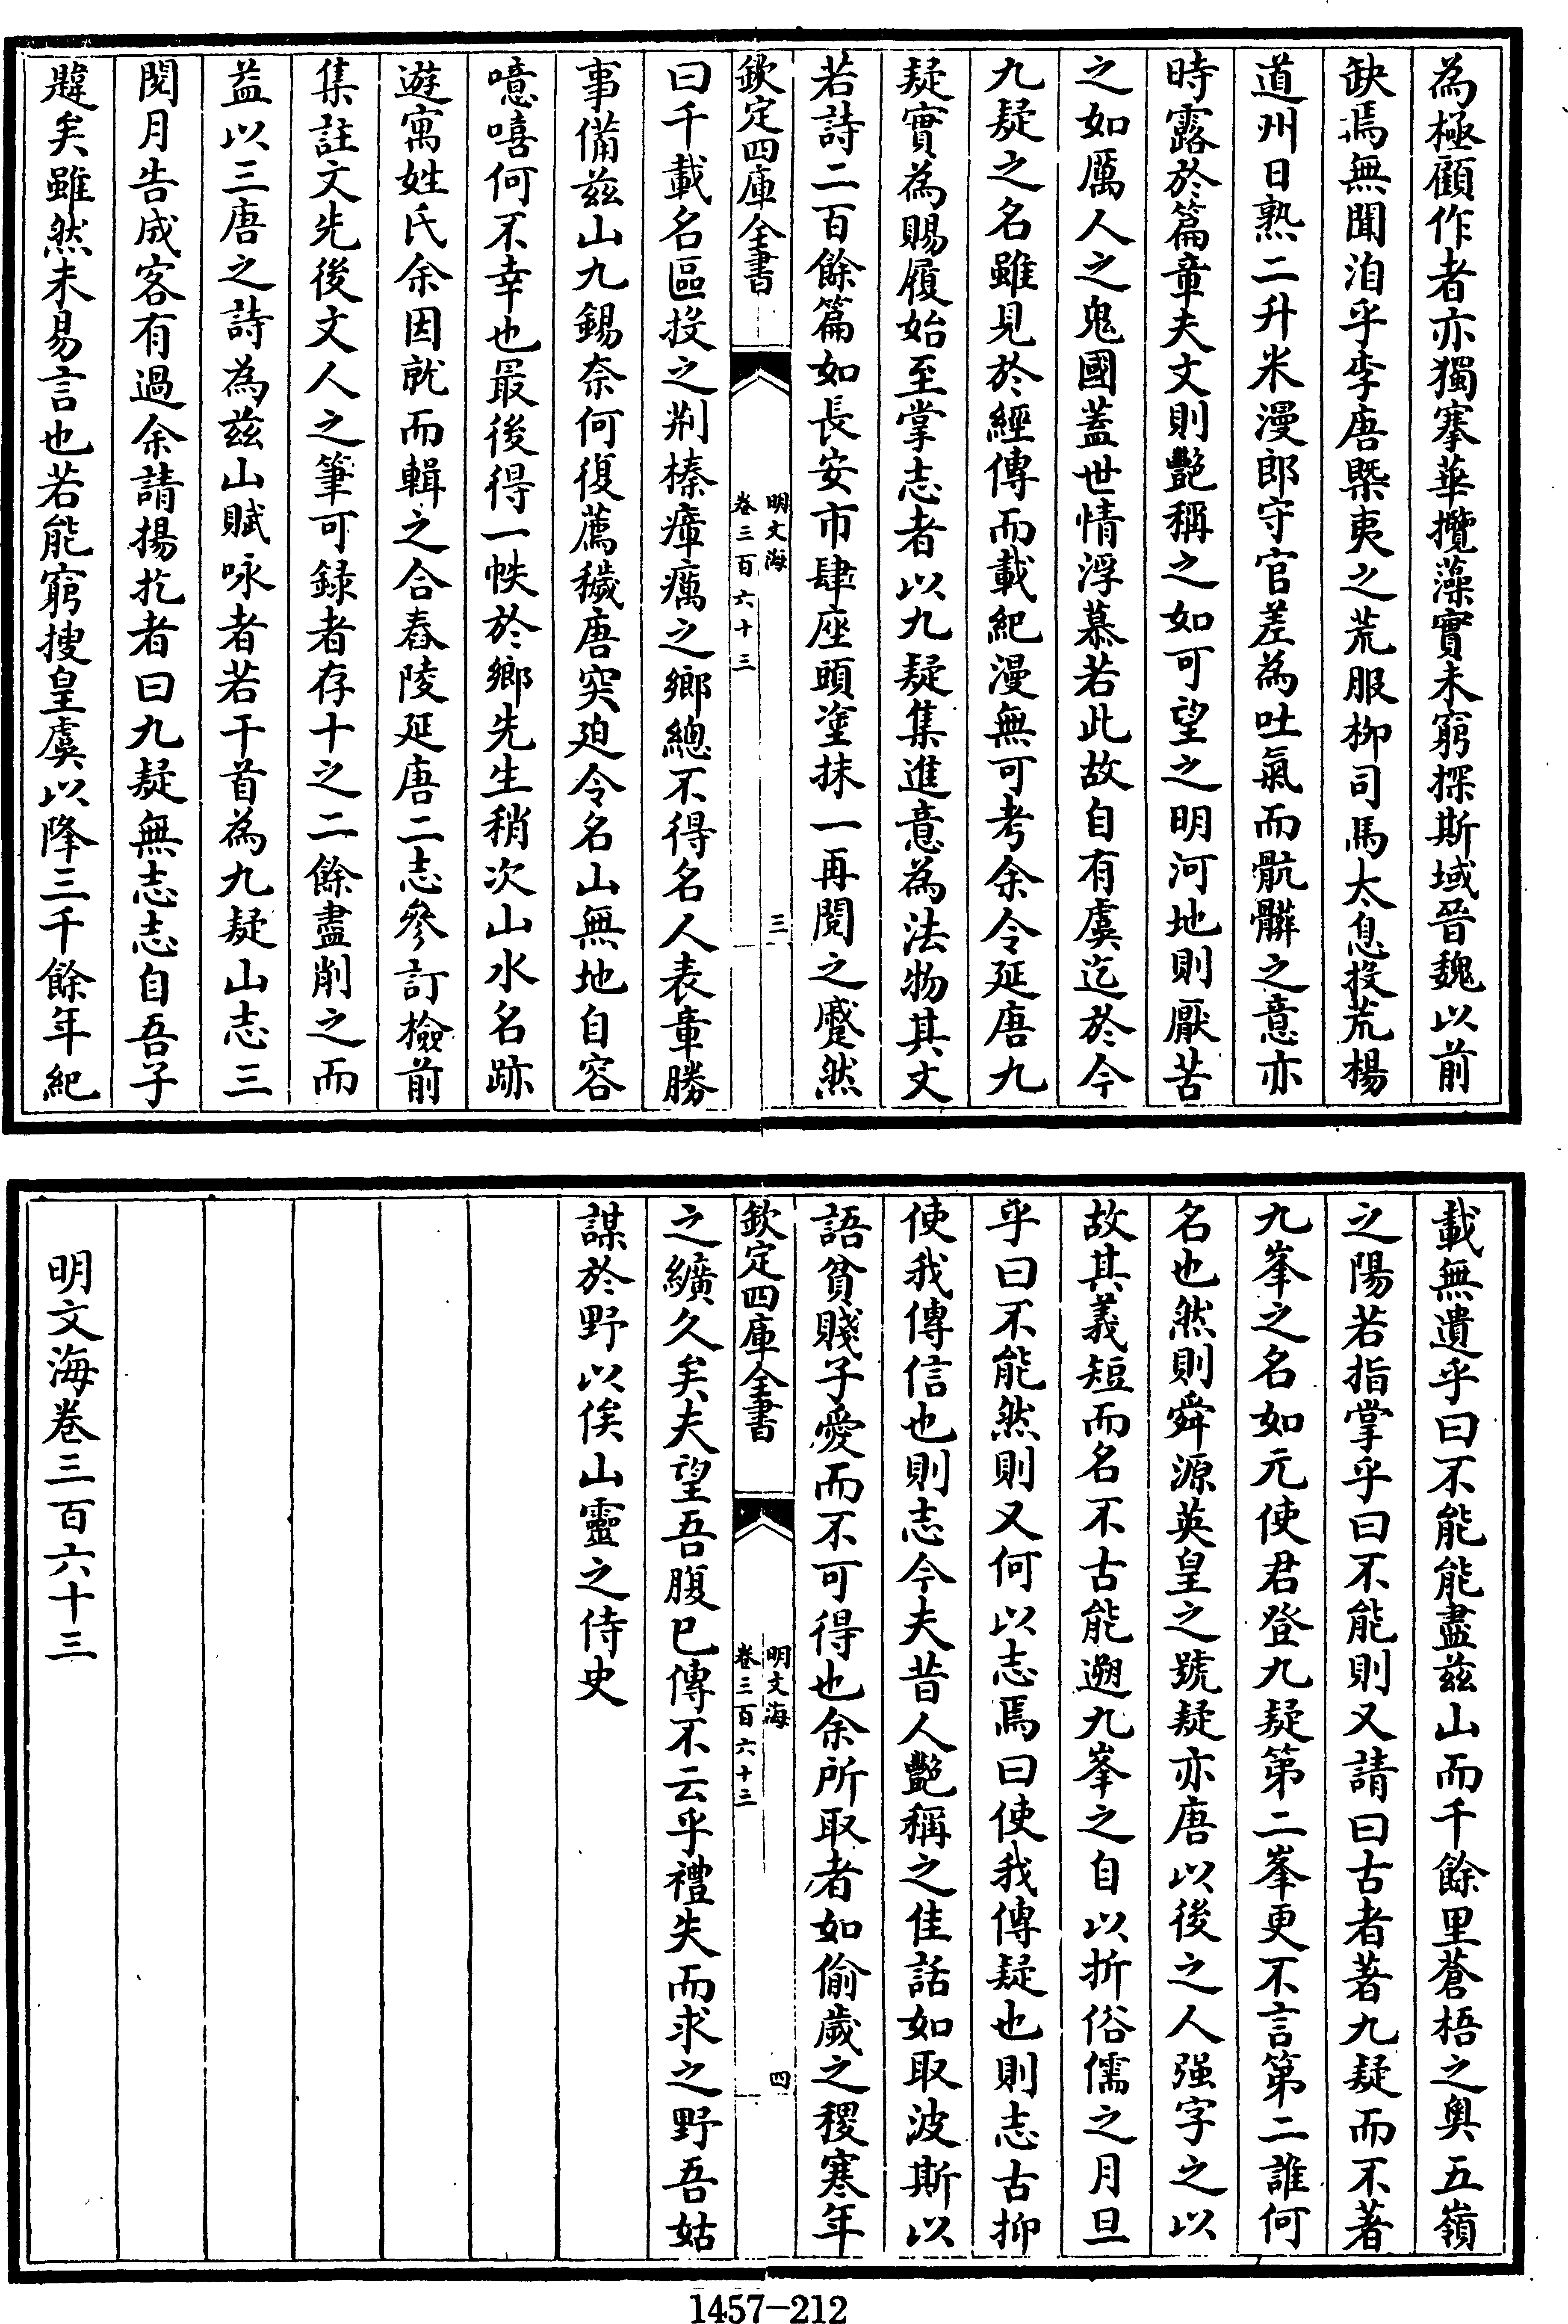 為極顧作者亦獨搴華攬藻實未窮探斯域晉魏以前
缺焉無聞洎乎李唐槩夷之荒服柳司馬太息投荒楊
道州日熟二升米漫郎守官差為吐氣而骯髒之意亦
時露於篇章夫文則艷稱之如可望之明河地則厭苦
之如厲人之鬼國蓋世情浮慕若此故自有虞迄於今
九疑之名雖見於經傳而載紀漫無可考余令延唐九
疑實為賜履始至掌志者以九疑集進意為法物其文
若詩二百餘篇如長安市肆座頭塗抹一再閱之蹙然
欽定四庫全書
明文海
卷三百六十三
三
曰千載名區投之荆榛瘴癘之鄉總不得名人表章勝
事備兹山九錫奈何復薦穢唐突廹令名山無地自容
噫嘻何不幸也最後得一帙於鄉先生稍次山水名跡
遊寓姓氏余因就而輯之合舂陵延唐二志參訂檢前
集註文先後文人之筆可録者存十之二餘盡削之而
益以三唐之詩為兹山賦咏者若干首為九疑山志三
閱月告成客有過余請揚扢者曰九疑無志志自吾子
韙矣雖然未易言也若能窮搜皇虞以降三千餘年紀
載無遺乎曰不能能盡兹山而千餘里蒼梧之奥五嶺
之陽若指掌乎曰不能則又請曰古者著九疑而不著
九峯之名如元使君登九疑第二峯更不言第二誰何
名也然則舜源英皇之號疑亦唐以後之人强字之以
故其義短而名不古能遡九峯之自以折俗儒之月旦
乎曰不能然則又何以志焉曰使我傳疑也則志古抑
使我傳信也則志今夫昔人艷稱之佳話如取波斯以
語貧賤子愛而不可得也余所取者如偷歲之稷寒年
欽定四庫全書
明文海
卷三百六十三
四
之纊久矣夫望吾腹已傳不云乎禮失而求之野吾姑
謀於野以俟山靈之侍史
明文海卷三百六十三
1457-212